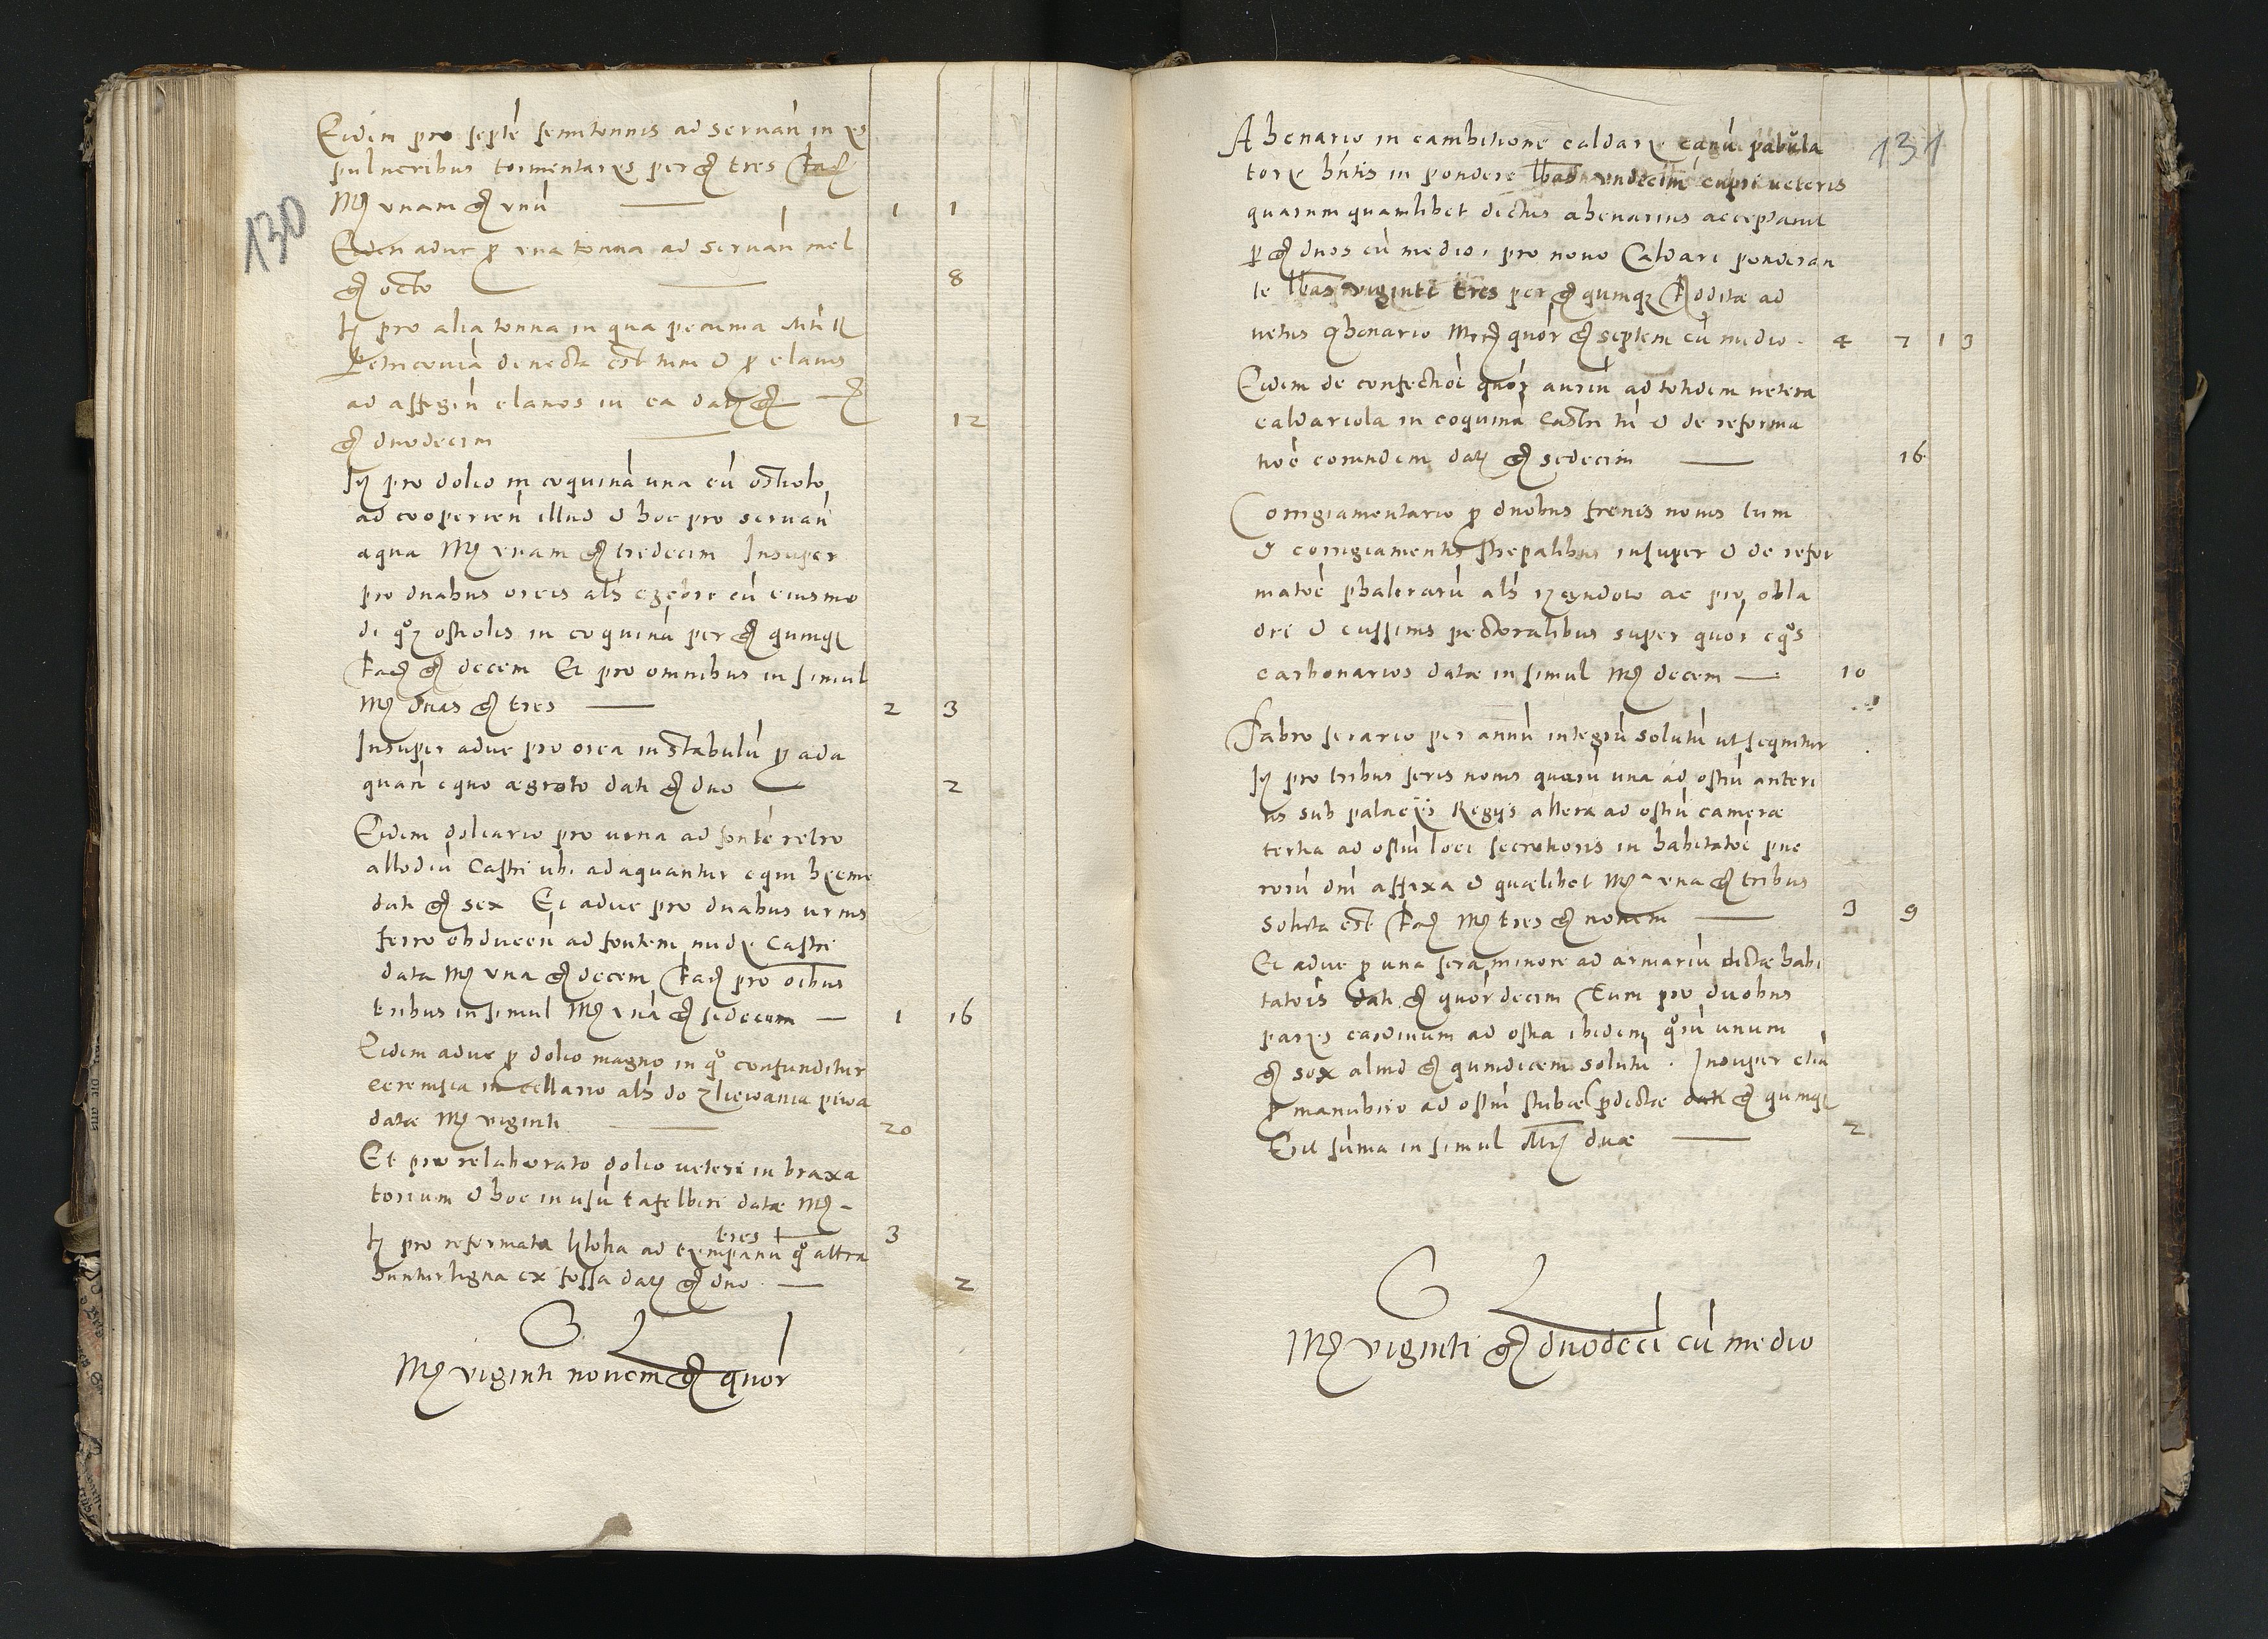 130
Eidem pro septē semitonnis ad servan̄ in eis
pulveribus tormentarijs per gͬ tres
Mͬ vnam gͬ vnū — 1 1
Eidem aduc ꝑ vna tonna ad servan̄ mel
gͬ octo — 8
Itͫ pro alia tonna in qua pecunia
Petricoviā devecta est tum & ꝑ clavis
ad affigen̄ clavos in ea datͥ
gͬ duodecim — 12
Itͫ pro dolio in coquinā una cū ostiolo
ad cooperien̄ illud & hoc pro servan̄
aqua Mͬ vnam gͬ tredecim Insuper
pro duabus orcis als cū eiusmo
di ostiolis in coquinā per gͬ qumqꝫ
facͥ gͬ decem Et pro omnibus in simul
Mͬ duas gͬ tres — 2 3
Insuper aduc pro orca in stabulū ꝑ ada
quan̄ equo aegroto dati gͬ duo — 2
Eidem doliario pro urna ad fontē retro
allodiū Castri ubi adaquantur equi hyeme
dati gͬ sex Et aduc pro duabus urnis
ferro obducen̄ ad fontem Castri
data Mͬ vna gͬ decem facͥ pro oībus
tribus in simul Mͬ vnā gͬ sedecem — 1 16
Eidem aduc ꝑ dolio magno in qͦ confunditur
cerevisia in cellario als do zliewania piwa
datae Mͬ viginti — 20
Et pro relaborato dolio veteri in braxa
torium & hoc in usū tafelbiri datae Mͬ –
tres — 3
Itͫ pro reformata ad tympanū qͦ attra
huntur ligna ex fossa datͥ gͬ duo — 2
Mͬ viginti novem gͬ quor
131
Ahenario in cambitione caldarͥ canū pabula
torͥ hn̄tis in pondere lbas vndecim cupri veteris
quarum quamlibet dictus ahenarius acceptavit
ꝑ gͬ duos cū medio, pro novo Caldari ponderan
te lbas viginti tres per gͬ qumqꝫ additae ad
vetus ahenario Mͬ quor gͬ septem cū medio. 4 7 1 3
Eidem de confectiōe quor auriū ad totidem vetera
caldariola in coquina castri tū & de reforma
tiōe eorundem datͥ gͬ sedecim — 16
Corrigiamentario ꝑ duobus frenis novis tum
& corrigiamentis strepalibus insuper & de refor
matōe phalerarū als rzęndow ac pro obla
dri & cussinis pectoralibus super quor eqͦs
carbonarios datae in simul Mͬ decem — 10
Fabro serario per annū integrū solutū ut sequitur
Itͫ pro tribus seris novis quarū una ad ostiū anteri
us sub palacijs Regijs altera ad ostiū camerae
tertia ad ostiū loci secretioris in habitatōe pue
rorū dn̄i affixa & quaelibet Mͬ vna gͬ tribus
soluta est facͥ Mͬ tres gͬ novem — 3 9
Et aduc ꝑ una sera minore ad armariū dictae habi
tatōis dati gͬ quordecim Cum pro duobus
parijs cardinum ad ostia ibidem qͦrū unum
gͬ sex aliud gͬ quindicem solutū. Insuper etiā
ꝑ manubrio ad ostiū stubae ꝑdictae dati gͬ qumqꝫ
Erit sūma in simul Mrͨ duae — 2
Mͬ viginti gͬ duodeci cū medio